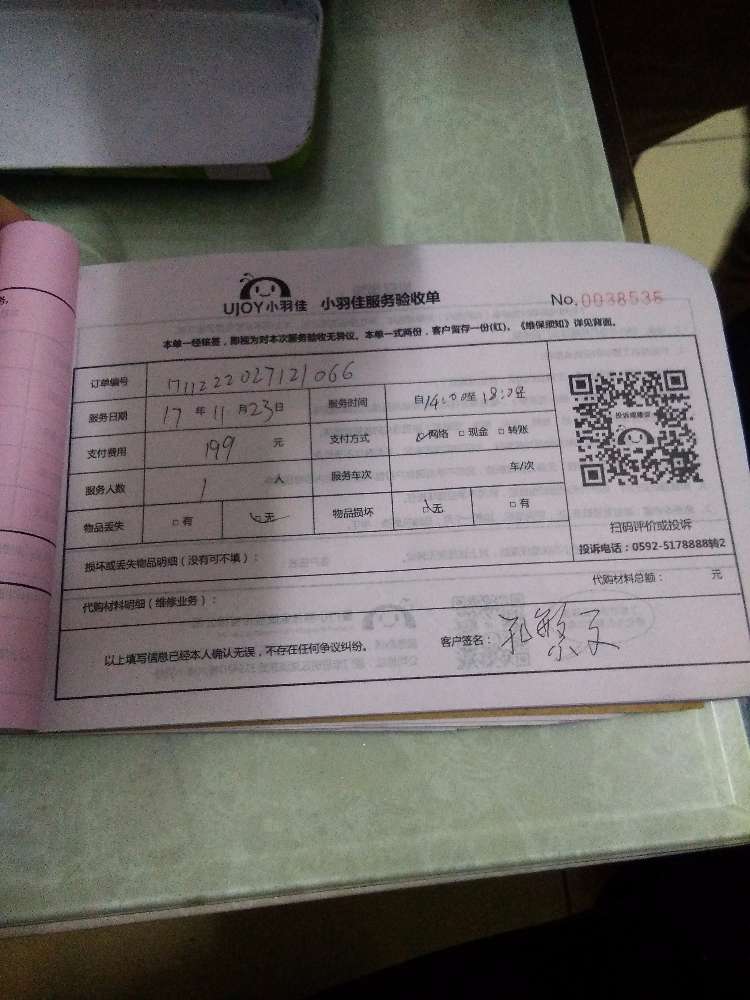 UJOY小羽佳 小羽佳服务验收单 No.0038535
本单一经签签，即视为对本次服务验收无异议。本单一式两份，客户留存一份(红)、《维保须知》详见背面。
订单编号 171122202712​1066
服务日期 17年11月23日 服务时间 自14:00至18:00
支付费用 199 元 支付方式 网络 □现金 □转账
服务人数 1 人 服务车次 车/次
物品丢失 □有 □无 物品损坏 □无 □有
投诉或建议
扫码评价或投诉
投诉电话：0592-5178888转2
损坏或丢失物品明细（没有可不填）：
代购材料明细（维修业务）： 代购材料总额： 元
以上填写信息已经本人确认无误，不存在任何争议纠纷。 客户签名：